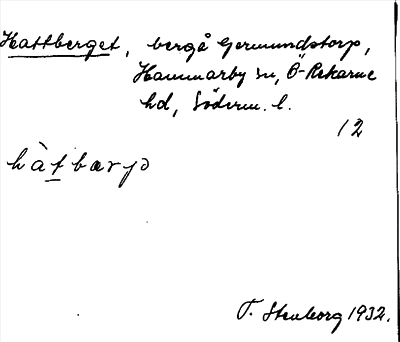 Hattberget, bergå Germundstorp,
Hammarby sn, Ö-Rekarne
hd, Söderm. l.
12
hàtbærjə
T. Stenborg 1932.